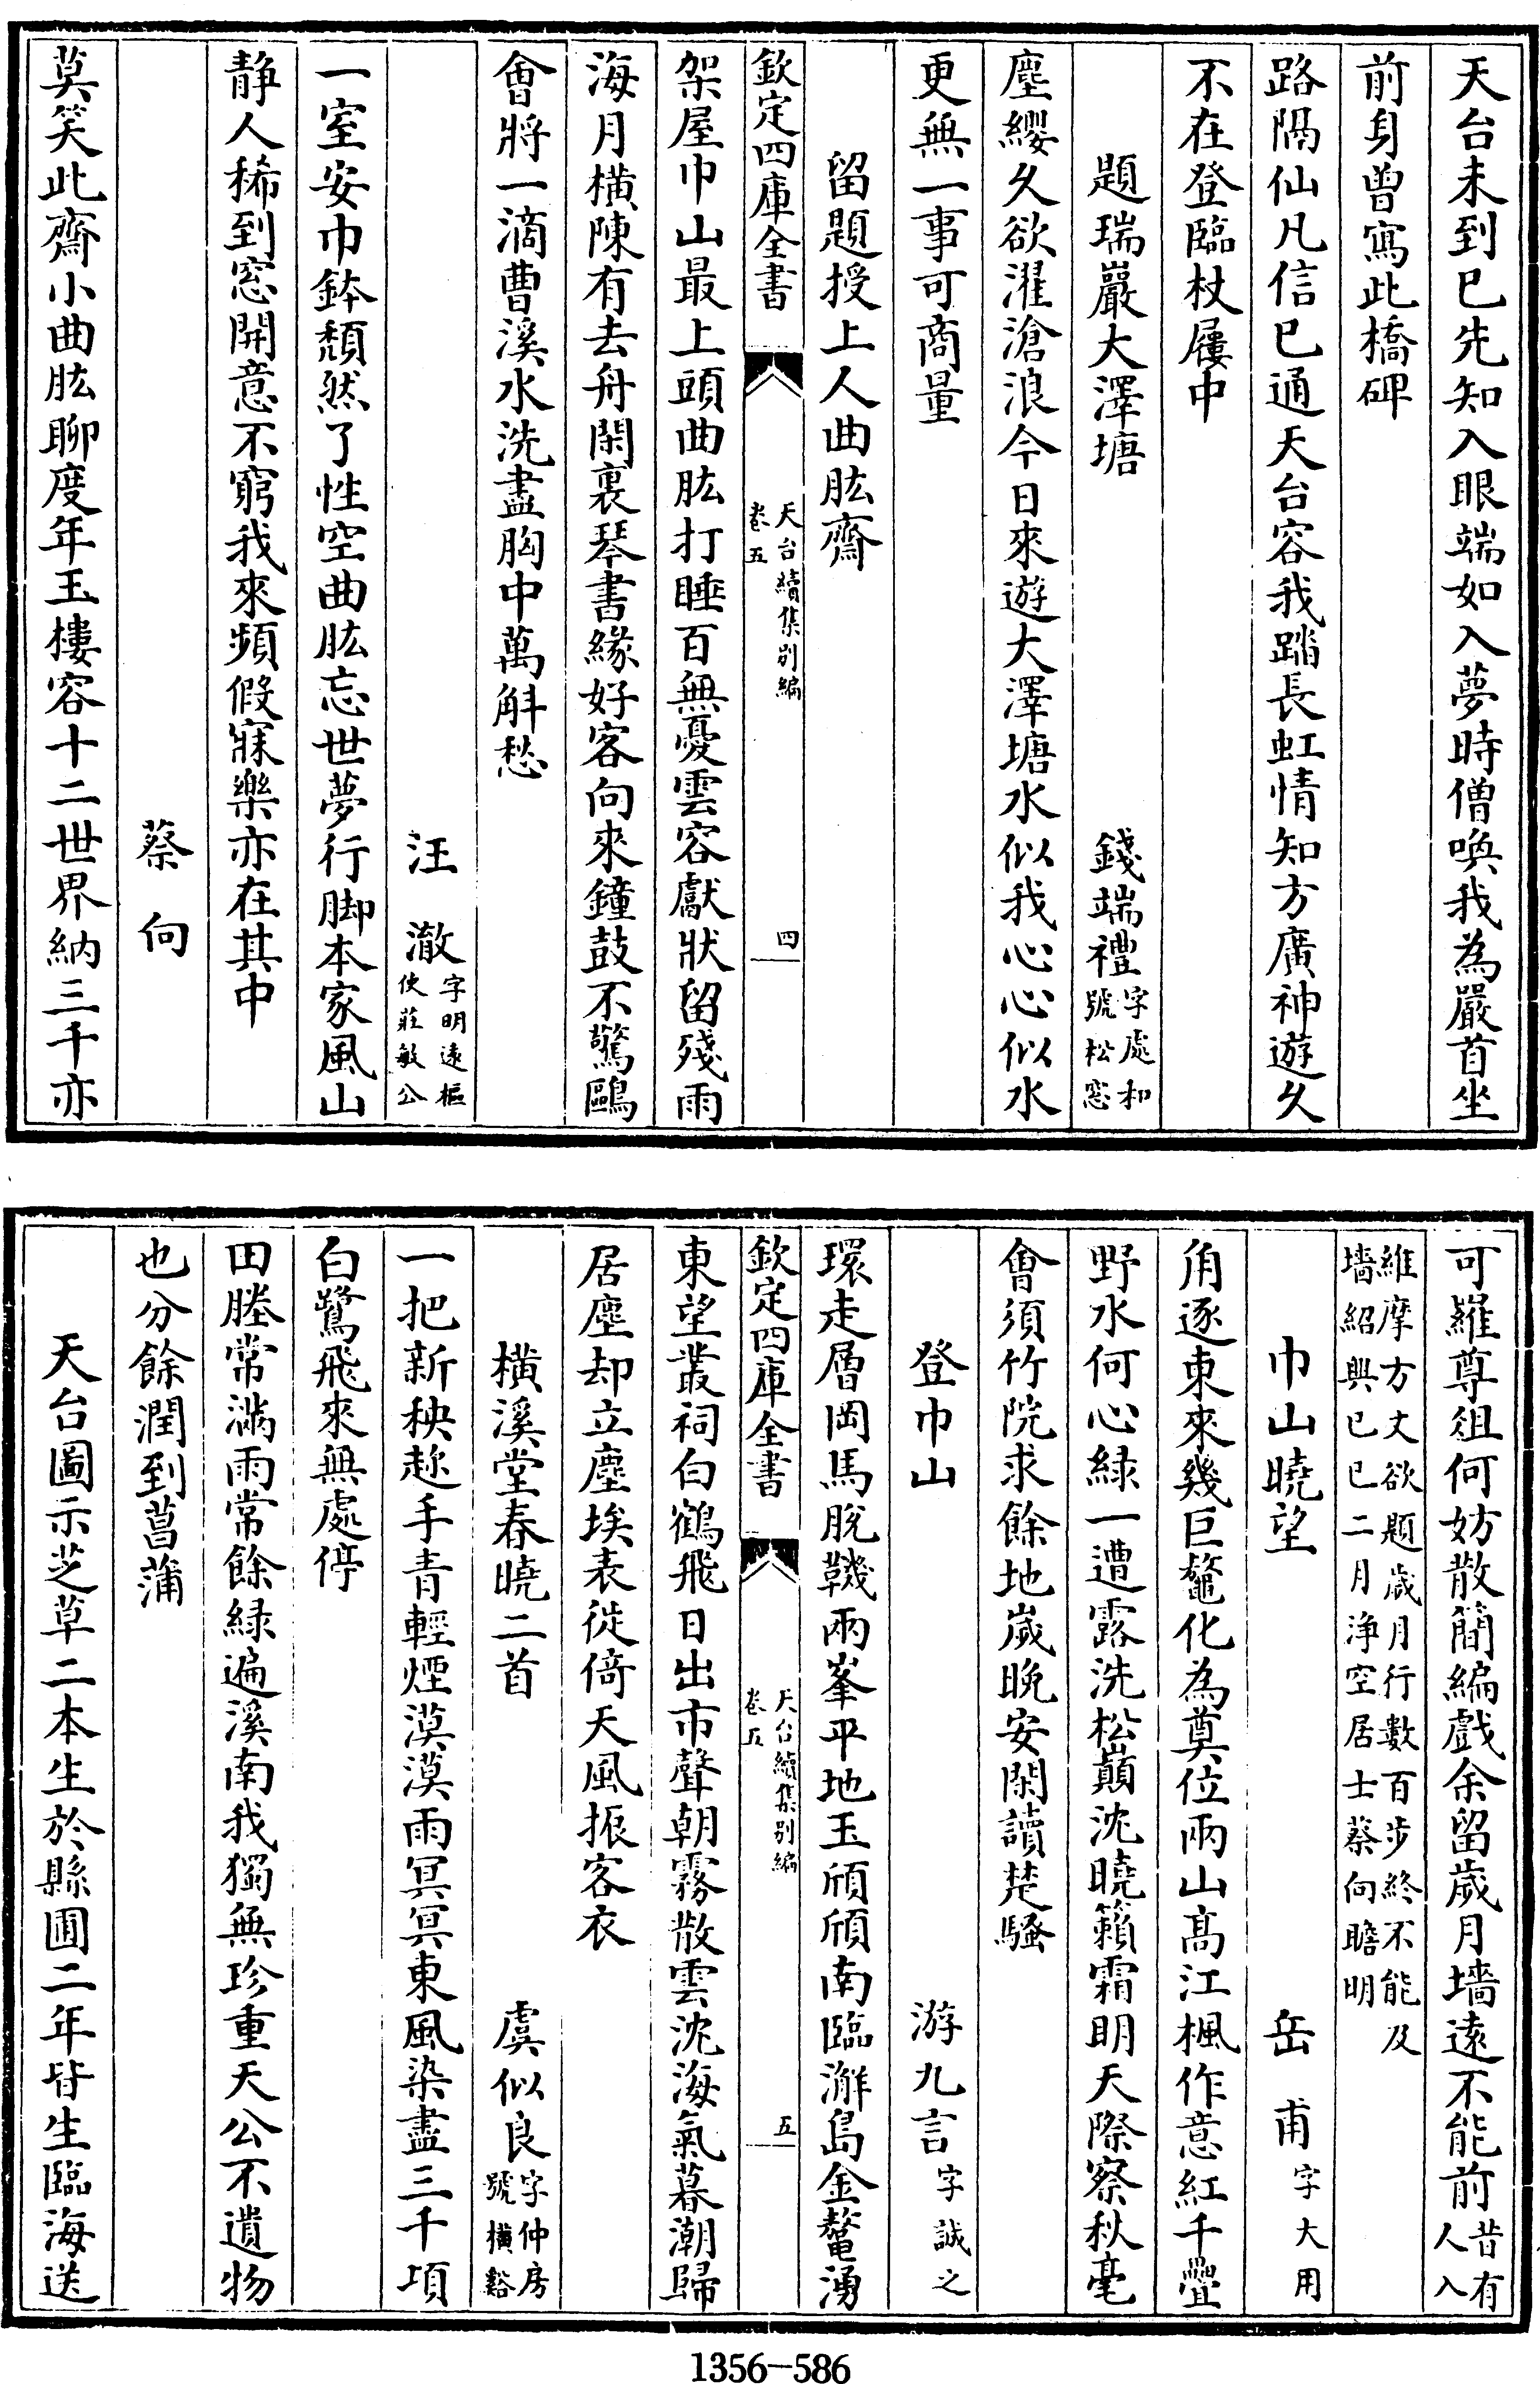 天台未到已先知入眼端如入夢時僧喚我為嚴首坐
前身曾寫此橋碑
路隔仙凡信已通天台容我踏長虹情知方廣神遊久
不在登臨杖屨中
題瑞巖大澤塘　錢端禮字處和號松窓
塵纓久欲濯滄浪今日來遊大澤塘水似我心心似水
更無一事可商量
留題授上人曲肱齋
欽定四庫全書　天台續集別編卷五　四
架屋巾山最上頭曲肱打睡百無憂雲容獻狀留殘雨
海月橫陳有去舟閑裏琴書緣好客向來鐘鼓不驚鷗
會將一滴曹溪水洗盡胸中萬斛愁
汪澈字明遠樞使莊敏公
一室安巾鉢頽然了性空曲肱忘世夢行脚本家風山
静人稀到窓開意不窮我來頻假寐樂亦在其中
蔡向
莫笑此齋小曲肱聊度年玉樓容十二世界納三千亦
可羅尊俎何妨散簡編戲余留歲月墻遠不能前昔有人入
維摩方丈欲題歲月行數百步終不能及墻紹興己巳二月淨空居士蔡向瞻明
巾山曉望　岳甫字大用
角逐東來幾巨鼇化為奠位兩山高江楓作意紅千疊
野水何心緑一遭露洗松巔沈曉籟霜明天際察秋毫
會須竹院求餘地歲晚安閑讀楚騷
登巾山　游九言字誠之
環走層岡馬脫鞿兩峯平地玉頎頎南臨澥島金鼇湧
欽定四庫全書　天台續集別編卷五　五
東望叢祠白鶴飛日出市聲朝霧散雲沈海氣暮潮歸
居塵却立塵埃表徙倚天風振客衣
橫溪堂春曉二首　虞似良字仲房號橫谿
一把新秧趂手青輕煙漠漠雨冥冥東風染盡三千項
白鷺飛來無處停
田塍常滿雨常餘緑遍溪南我獨無珍重天公不遺物
也分餘潤到菖蒲
天台圖示芝草二本生於縣圃二年皆生臨海送
1356-586